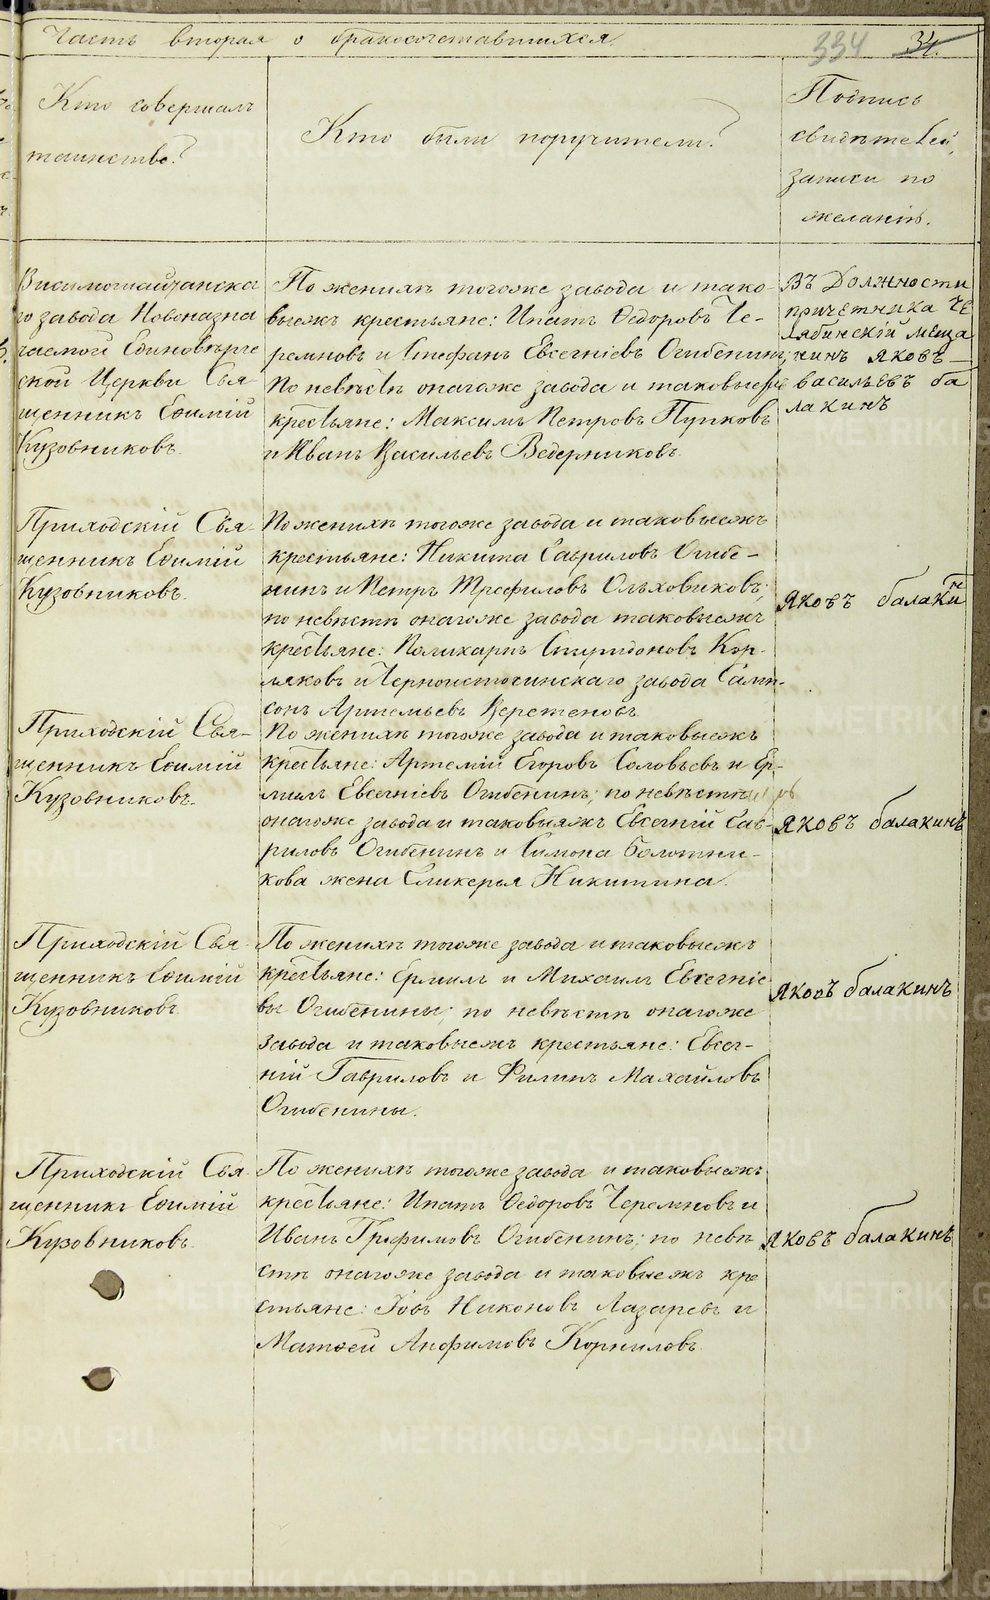 Часть вторая о бракосочетавшихся.
334 34.
Кто совершалъ
таинство?
Кто были поручители?
Подпись
свидѣтелей
записи по
желанію.
Висимошайтанска
го завода Новоназна
чаемой Единовѣрче
ской Церкви Свя
щенникъ Евѳимій
Кузовниковъ.
По женихѣ тогоже завода и тако-
выежъ крестьяне: Ипатъ Ѳедоровъ Че-
ремновъ и Стефанъ Евсегніевъ Огибенинъ;
По невѣстѣ онагоже завода и таковыеже
крестьяне: Максимъ Петровъ Пупковъ
и Иванъ Васильевъ Ведерниковъ.
Въ Должности
причетника Че
лябинскій меща
нинъ Яковъ
васильевъ ба
лакинъ
Приходскій Свя-
щенникъ Евѳимій
Кузовниковъ.
По женихѣ тогоже завода и таковыежъ
крестьяне: Никита Гавриловъ Огибе-
нинъ и Петръ Трефиловъ Ольховиковъ;
по невѣстѣ онагоже завода таковыежъ
крестьяне: Поликарпъ Спиридоновъ Кор-
ляковъ и Черноисточинскаго завода Самп-
сонъ Артемьевъ Веретеновъ.
Яковъ балакин
Приходскій Свя-
щенникъ Евѳимій
Кузовниковъ.
По женихѣ тогоже завода и таковыежъ
крестьяне: Артемій Егоровъ Соловьевъ и Ер-
милъ Евсегніевъ Огибенинъ; по невѣстѣ
онагоже завода и таковыяжъ Евсегній Гав-
риловъ Огибенинъ и Симона Болотни-
кова жена Гликерья Никитина.
Яковъ балакинъ
Приходскій Свя-
щенникъ Евѳимій
Кузовниковъ.
По женихѣ тогоже завода и таковыежъ
крестьяне: Ермилъ и Михаилъ Евсегніе
вы Огибенины; по невѣстѣ онагоже
завода и таковыежъ крестьяне: Евсег-
ній Гавриловъ и Филипъ Михайловъ
Огибенины.
Яковъ балакинъ
Приходскій Свя-
щенникъ Евѳимій
Кузовниковъ.
По женихѣ тогоже завода и таковыежъ
крестьяне: Ипатъ Ѳедоровъ Черемновъ и
Иванъ Трифимовъ Огибенинъ; по невѣ
стѣ онагоже завода и таковыежъ кре
стьяне: Іовъ Никоновъ Лазаревъ и
Матвей Анфимовъ Корниловъ.
Яковъ балакинъ
METRIKI.GASO-URAL.RU